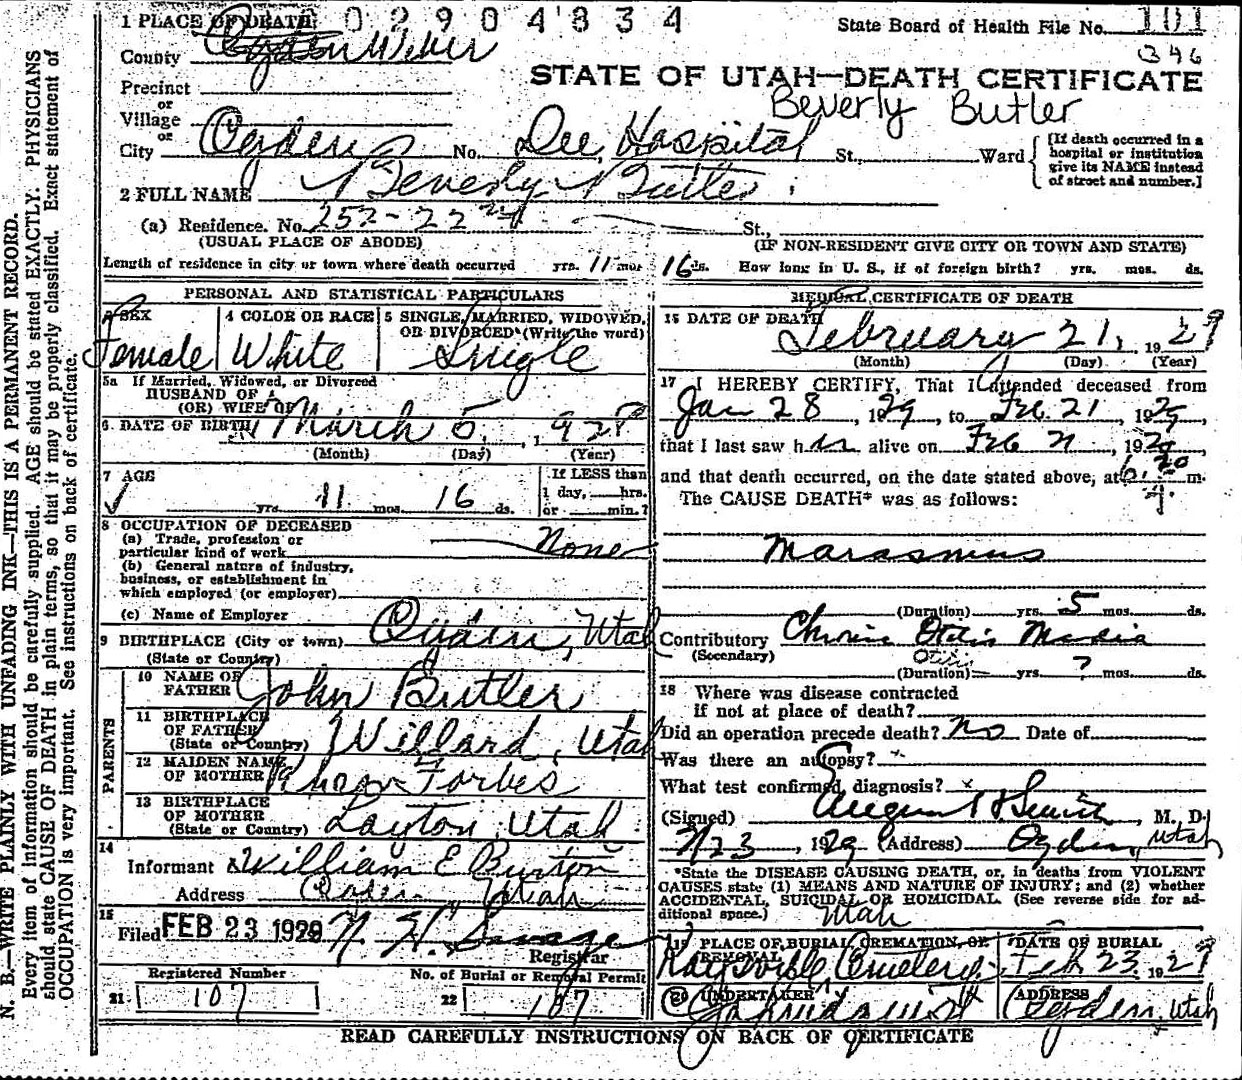 1 PLACE OF DEATH
2904834
State Board of Health File No. 101
346
County Weber
STATE OF UTAH—DEATH CERTIFICATE
Precinct
or
Village
or
Beverly Butler
City Ogden No. Dee Hospital St., Ward
[If death occurred in a hospital or institution give its NAME instead of street and number.]
2 FULL NAME Beverly Butler
(a) Residence. No. 252-22 St.,
(USUAL PLACE OF ABODE) (IF NON-RESIDENT GIVE CITY OR TOWN AND STATE)
Length of residence in city or town where death occurred yrs. 11 mos 16 ds. How long in U. S., if of foreign birth? yrs. mos. ds.
PERSONAL AND STATISTICAL PARTICULARS
3 SEX Female
4 COLOR OR RACE White
5 SINGLE, MARRIED, WIDOWED, OR DIVORCED (Write the word) Single
5a If Married, Widowed, or Divorced
HUSBAND OF
(OR) WIFE OF
6. DATE OF BIRTH March 5, 1928
(Month) (Day) (Year)
7 AGE yrs 11 mos 16 ds.
If LESS than
1 day, hrs.
or min.?
8 OCCUPATION OF DECEASED
(a) Trade, profession or
particular kind of work None
(b) General nature of industry,
business, or establishment in
which employed (or employer)
(c) Name of Employer
9 BIRTHPLACE (City or town) Ogden, Utah
(State or Country)
PARENTS
10 NAME OF FATHER John Butler
11 BIRTHPLACE OF FATHER (State or Country) Willard, Utah
12 MAIDEN NAME OF MOTHER Forbes
13 BIRTHPLACE OF MOTHER (State or Country) Layton, Utah
14
Informant William E Burton
Address Ogden Utah
15
Filed FEB 23 1929
Registrar
Registered Number
21 107
No. of Burial or Removal Permit
22 107
MEDICAL CERTIFICATE OF DEATH
16 DATE OF DEATH February 21, 1929
(Month) (Day) (Year)
17 I HEREBY CERTIFY, That I attended deceased from
Jan 28, 1929, to Feb. 21, 1929,
that I last saw her alive on Feb 21, 1929
and that death occurred, on the date stated above, at 6:20 m.
The CAUSE DEATH* was as follows:
Marasmus
(Duration) yrs. 5 mos. ds.
Contributory Chronic Otitis Media
(Secondary) Otitis
(Duration) yrs. ? mos. ds.
18 Where was disease contracted
if not at place of death?
Did an operation precede death? No Date of
Was there an autopsy?
What test confirmed diagnosis?
(Signed) M. D.
1929 (Address) Ogden, Utah
*State the DISEASE CAUSING DEATH, or, in deaths from VIOLENT
CAUSES state (1) MEANS AND NATURE OF INJURY; and (2) whether
ACCIDENTAL, SUICIDAL OR HOMICIDAL. (See reverse side for ad-
ditional space.) Utah
19 PLACE OF BURIAL, CREMATION, OR REMOVAL Kaysville Cemetery
DATE OF BURIAL Feb 23, 1929
20 UNDERTAKER
ADDRESS Ogden, Utah
READ CAREFULLY INSTRUCTIONS ON BACK OF CERTIFICATE
N. B.—WRITE PLAINLY WITH UNFADING INK—THIS IS A PERMANENT RECORD.
Every item of information should be carefully supplied. AGE should be stated EXACTLY. PHYSICIANS
should state CAUSE OF DEATH in plain terms, so that it may be properly classified. Exact statement of
OCCUPATION is very important. See instructions on back of certificate.